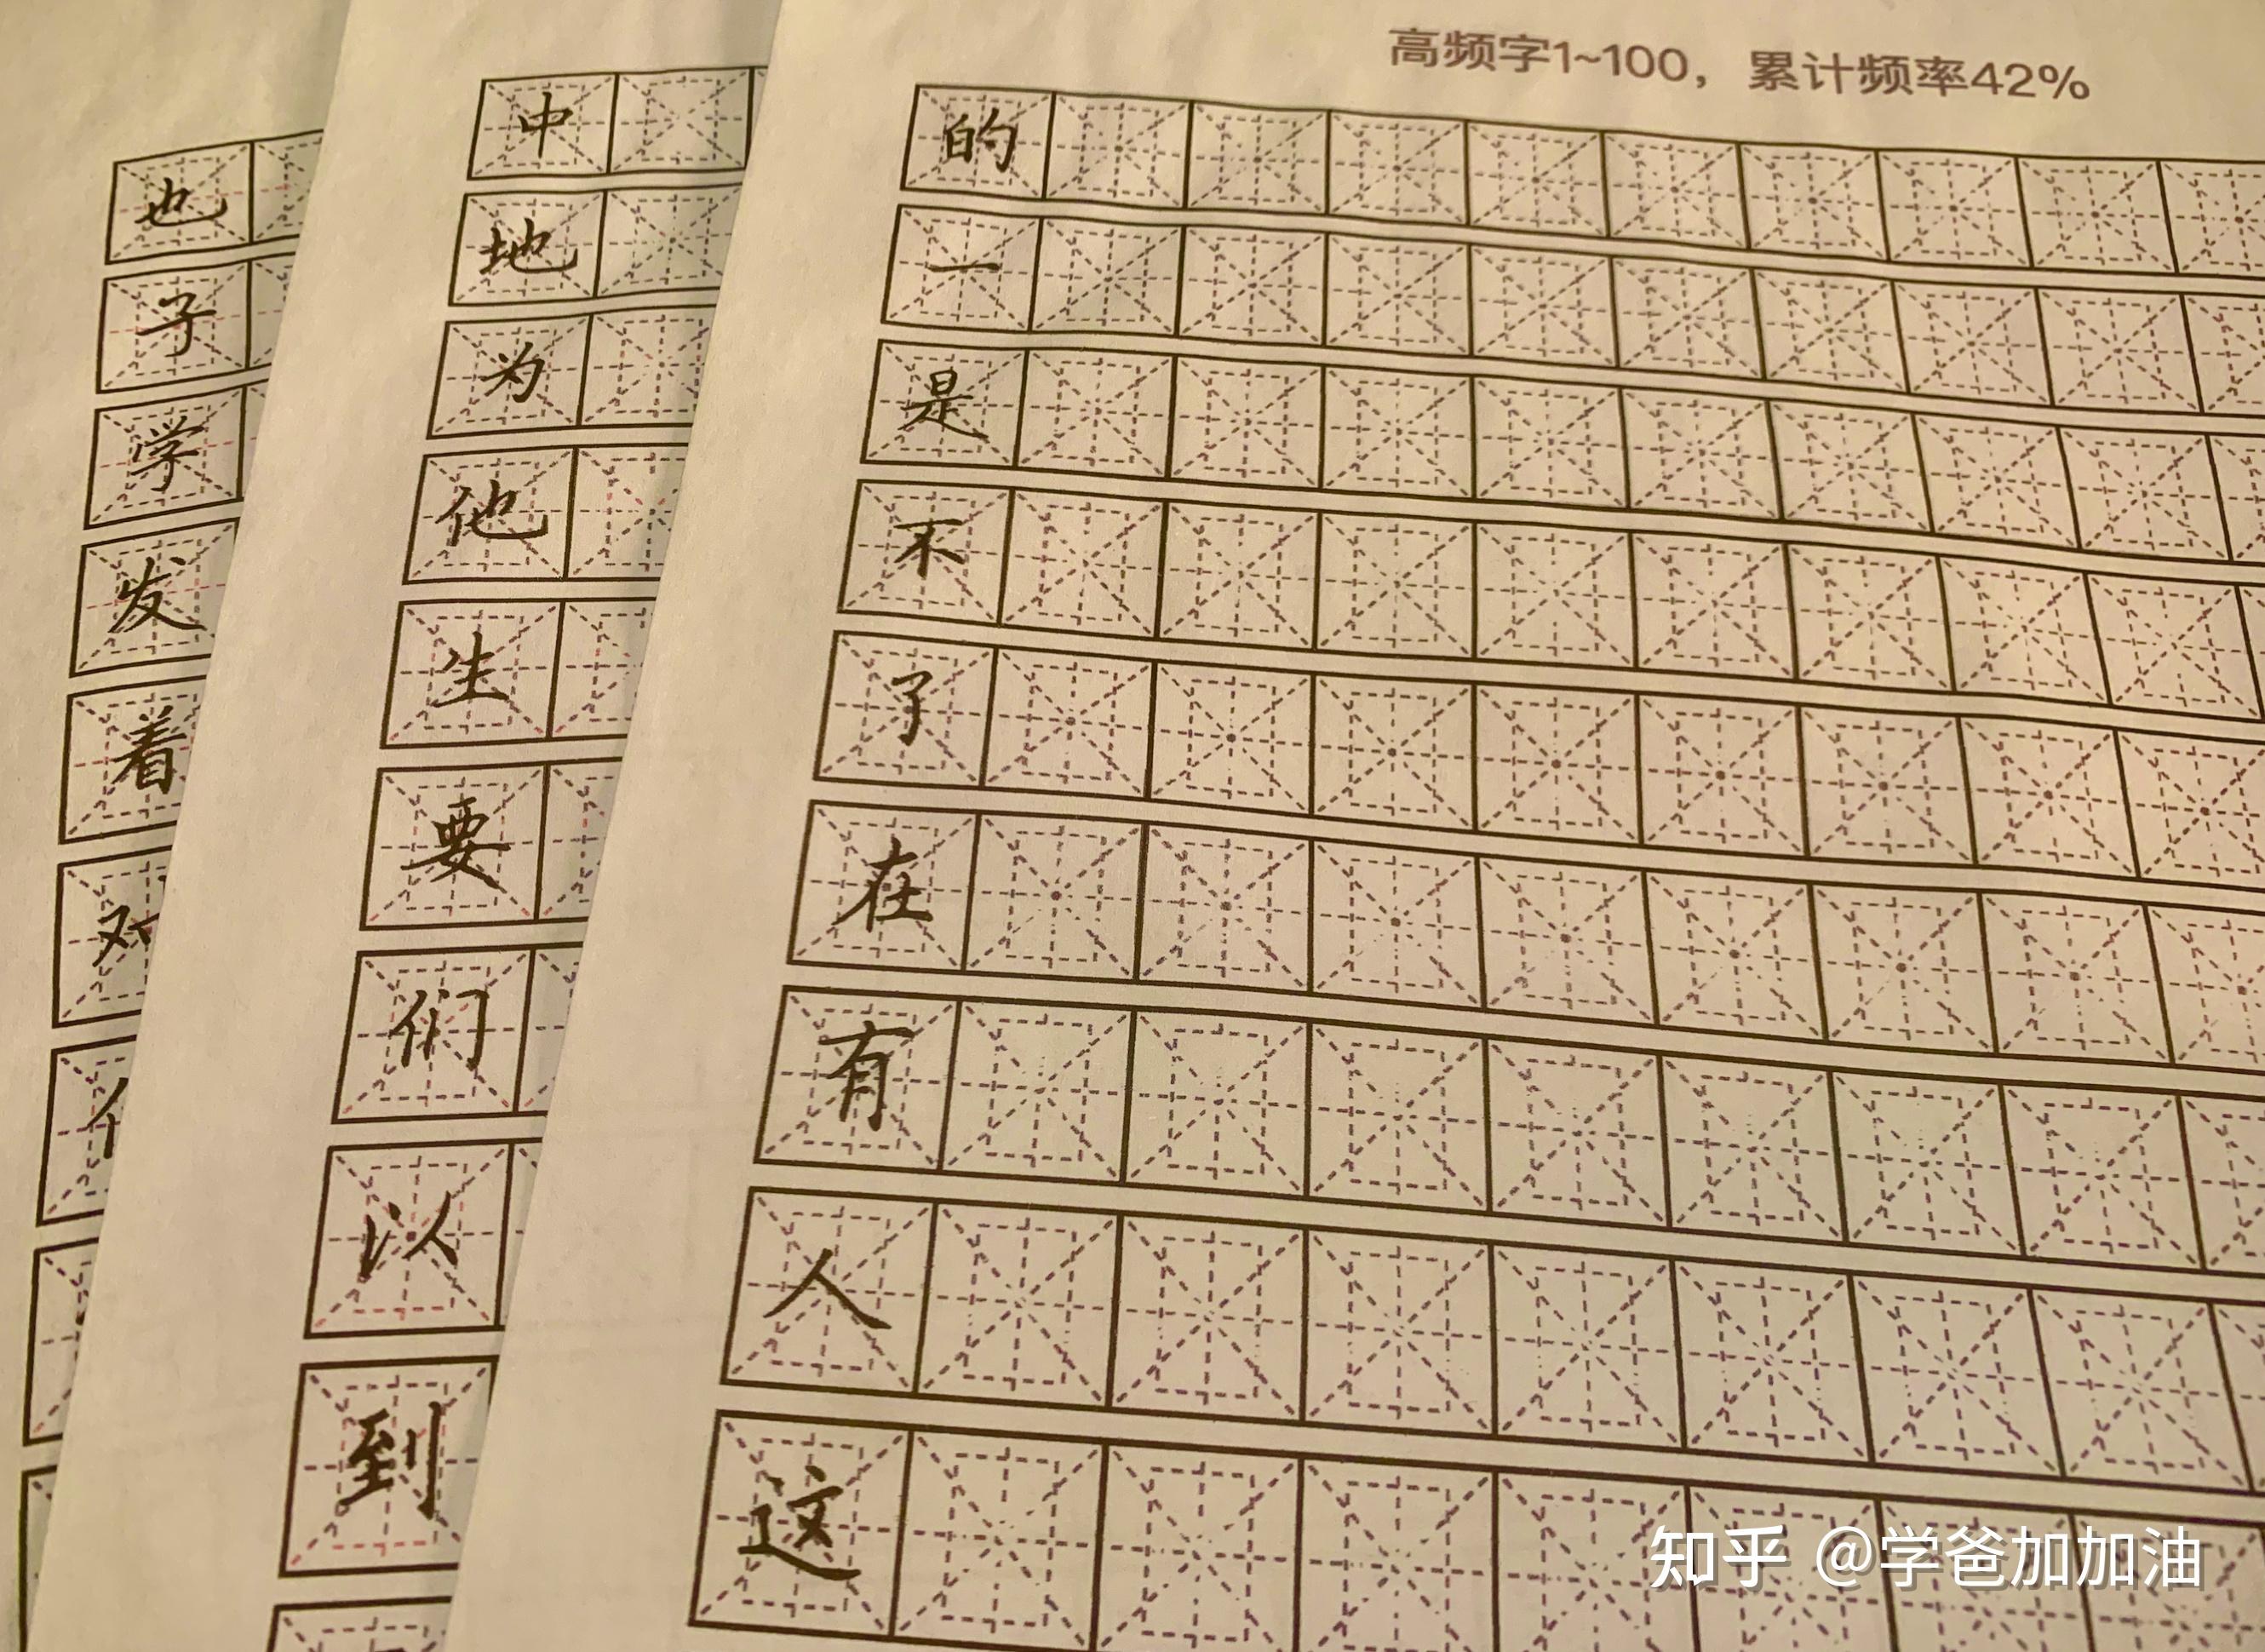 高频字1~100，累计频率42%
的
一
是
不
了
在
有
人
这
中
地
为
他
生
要
们
以
到
也
子
学
发
着
对
知乎 @学爸加加油